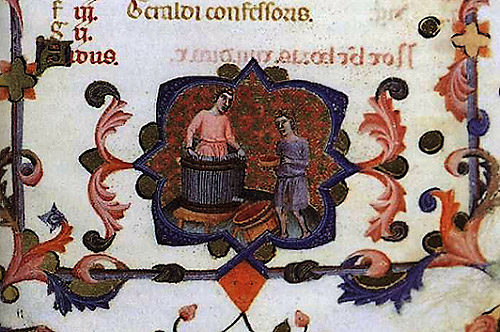 f iij. Geraldi confessoris.
g ij.
A idus.